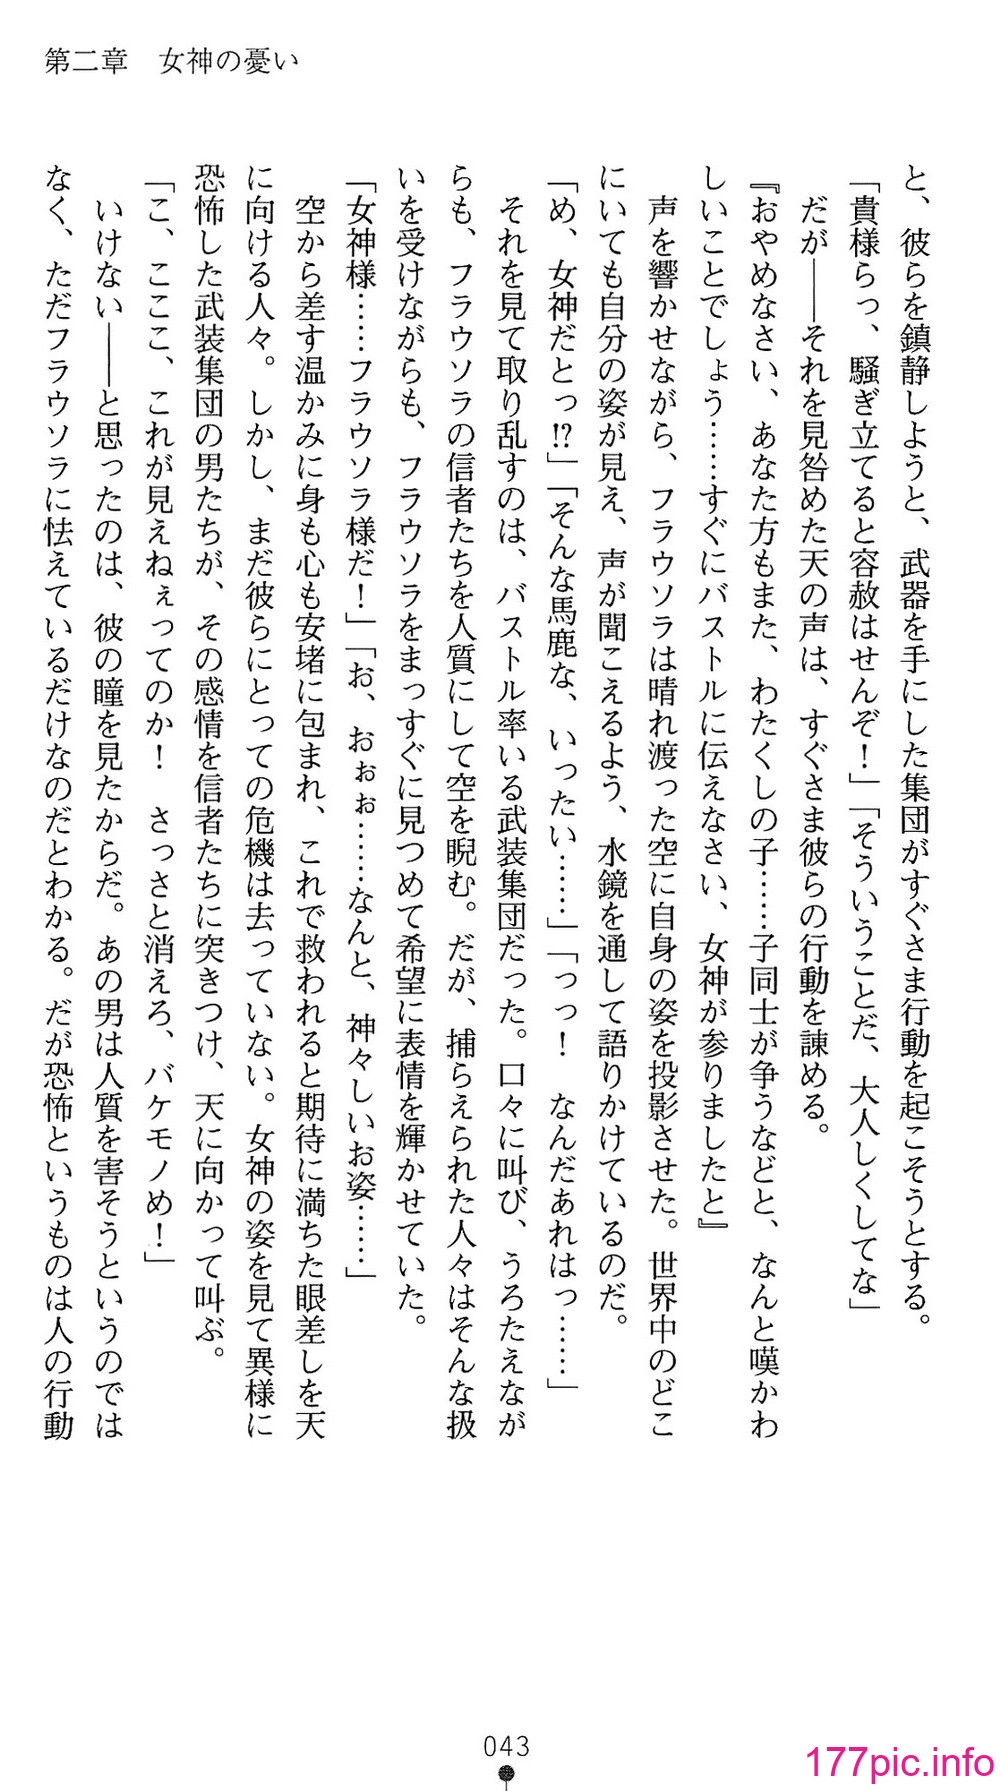 第二章　女神の憂い
と、彼らを鎮静しようと、武器を手にした集団がすぐさま行動を起こそうとする。
「貴様らっ、騒ぎ立てると容赦はせんぞ！」「そういうことだ、大人しくしてな」
　だが――それを見咎めた天の声は、すぐさま彼らの行動を諫める。
『おやめなさい、あなた方もまた、わたくしの子……子同士が争うなどと、なんと嘆かわ
しいことでしょう……すぐにバストルに伝えなさい、女神が参りましたと』
　声を響かせながら、フラウソラは晴れ渡った空に自身の姿を投影させた。世界中のどこ
にいても自分の姿が見え、声が聞こえるよう、水鏡を通して語りかけているのだ。
「め、女神だとっ!?」「そんな馬鹿な、いったい……」「っっ！　なんだあれはっ……」
　それを見て取り乱すのは、バストル率いる武装集団だった。口々に叫び、うろたえなが
らも、フラウソラの信者たちを人質にして空を睨む。だが、捕らえられた人々はそんな扱
いを受けながらも、フラウソラをまっすぐに見つめて希望に表情を輝かせていた。
「女神様……フラウソラ様だ！」「お、おぉぉ……なんと、神々しいお姿……」
　空から差す温かみに身も心も安堵に包まれ、これで救われると期待に満ちた眼差しを天
に向ける人々。しかし、まだ彼らにとっての危機は去っていない。女神の姿を見て異様に
恐怖した武装集団の男たちが、その感情を信者たちに突きつけ、天に向かって叫ぶ。
「こ、こここ、これが見えねぇってのか！　さっさと消えろ、バケモノめ！」
　いけない――と思ったのは、彼の瞳を見たからだ。あの男は人質を害そうというのでは
なく、ただフラウソラに怯えているだけなのだとわかる。だが恐怖というものは人の行動
043
177pic.info